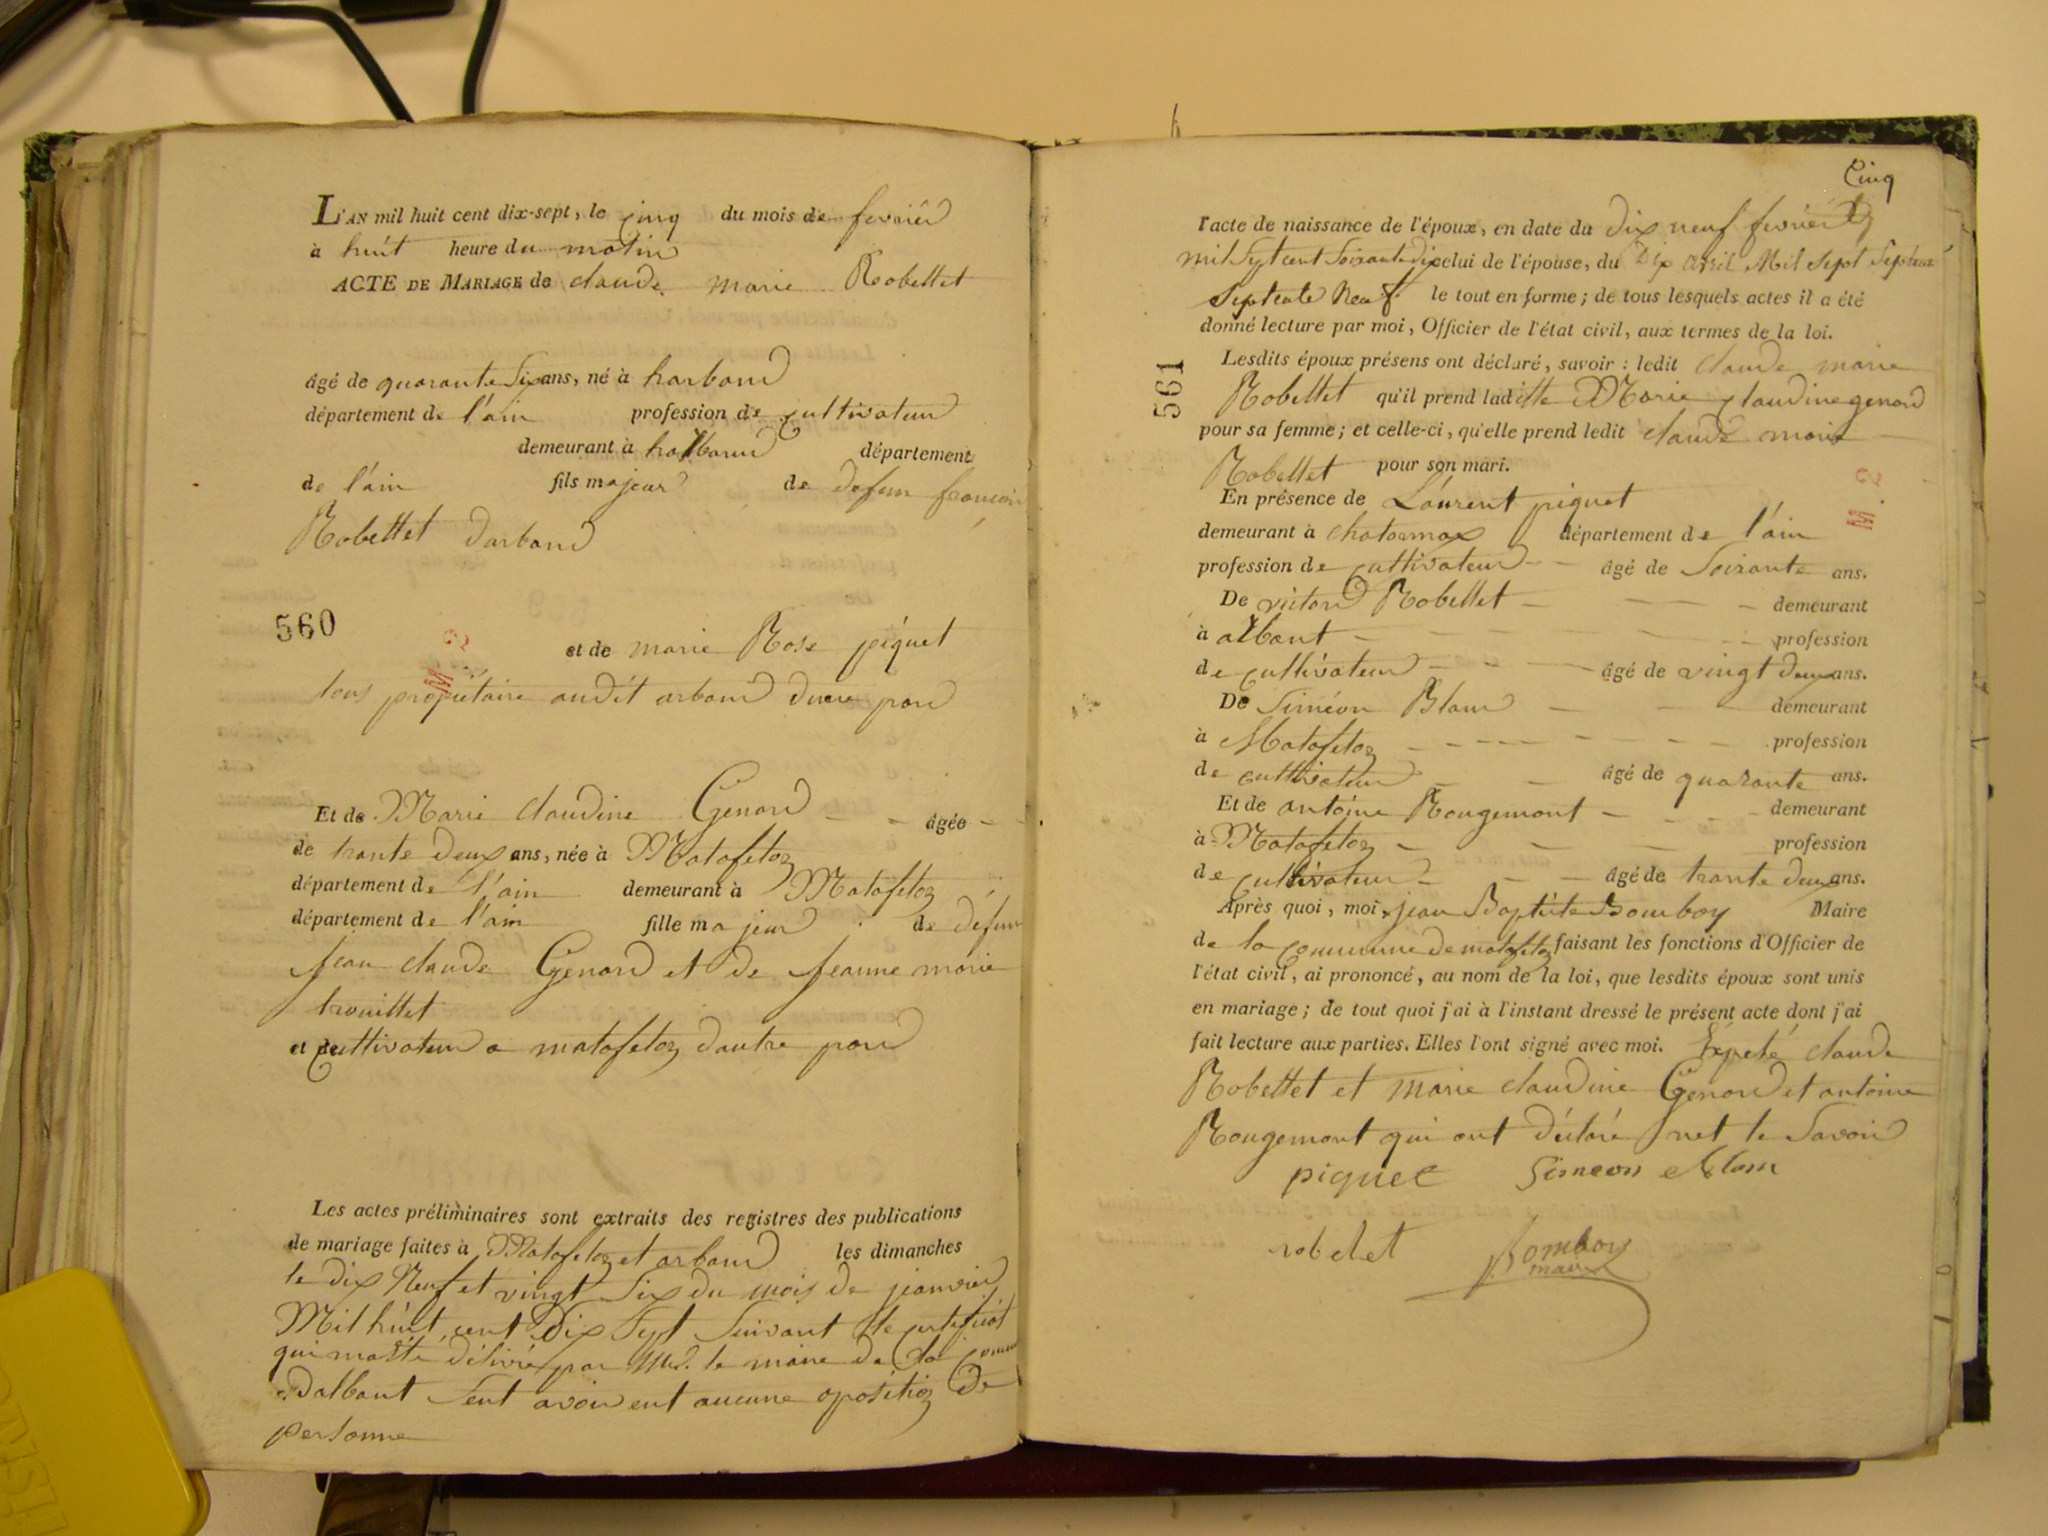 L'AN mil huit cent dix-sept, le cinq du mois de fevrier
à huit heure du matin
ACTE DE MARIAGE de claude marie Robettet
âgé de quarante Six ans, né à harband
département de l'ain profession de cultivateur
demeurant à département
de l'ain fils majeur de defun francois
Robettet darband
560
et de marie Rose piquet
tous propriétaire audit arband dune pard
Et de Marie claudine Genord âgée
de trante deux ans, née à Matafelon
département de l'ain demeurant à Matafelon
département de l'ain fille majeur de défun
jean claude Genord et de jeanne marie
trouillet
et cultivateur a matafelon dautre pard
Les actes préliminaires sont extraits des registres des publications
de mariage faites à Matafelon et arband les dimanches
le dix Neuf et vingt Six du mois de jeanvier
Mil huit cent Dix Sept Suivant le certificat
qui délivré par Mr. le maire de la
Dalbant avoir eut aucune opositios de
personne
Cinq
l'acte de naissance de l'époux, en date du dix neuf fevrier
mil Sept cent Soixante dix celui de l'épouse, du Dix avril Mil Sept
le tout en forme; de tous lesquels actes il a été
donné lecture par moi, Officier de l'état civil, aux termes de la loi.
561
Lesdits époux présens ont déclaré, savoir : ledit claude marie
Robettet qu'il prend laditte Marie claudine genord
pour sa femme; et celle-ci, qu'elle prend ledit claude marie
Robettet pour son mari.
En présence de Laurent piquet
demeurant à département de l'ain
profession de cultivateur âgé de Soixante ans.
De victord Robettet demeurant
à albant profession
de cultivateur âgé de vingt deux ans.
De Siméon Blanc demeurant
à Matafelon profession
de cultivateur âgé de quarante ans.
Et de antoine Rougemont demeurant
à Matafelon profession
de cultivateur âgé de trante deux ans.
Après quoi, moi, jean Baptiste Bomboy Maire
de la commune de matafelon faisant les fonctions d'Officier de
l'état civil, ai prononcé, au nom de la loi, que lesdits époux sont unis
en mariage; de tout quoi j'ai à l'instant dressé le présent acte dont j'ai
fait lecture aux parties. Elles l'ont signé avec moi. Expeté claude
Robettet et marie claudine Genord et antoine
Rougemont qui ont déclaré net le Savoir
piquet Simeon Blanc
robelet Bomboy
maire